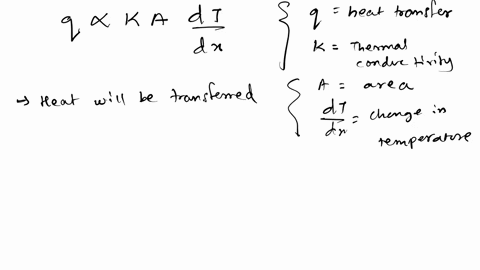 q ∝ K A dT/dx
q = heat transfer
K = Thermal conductivity
→ Heat will be transferred
A = area
dT/dx = change in temperature